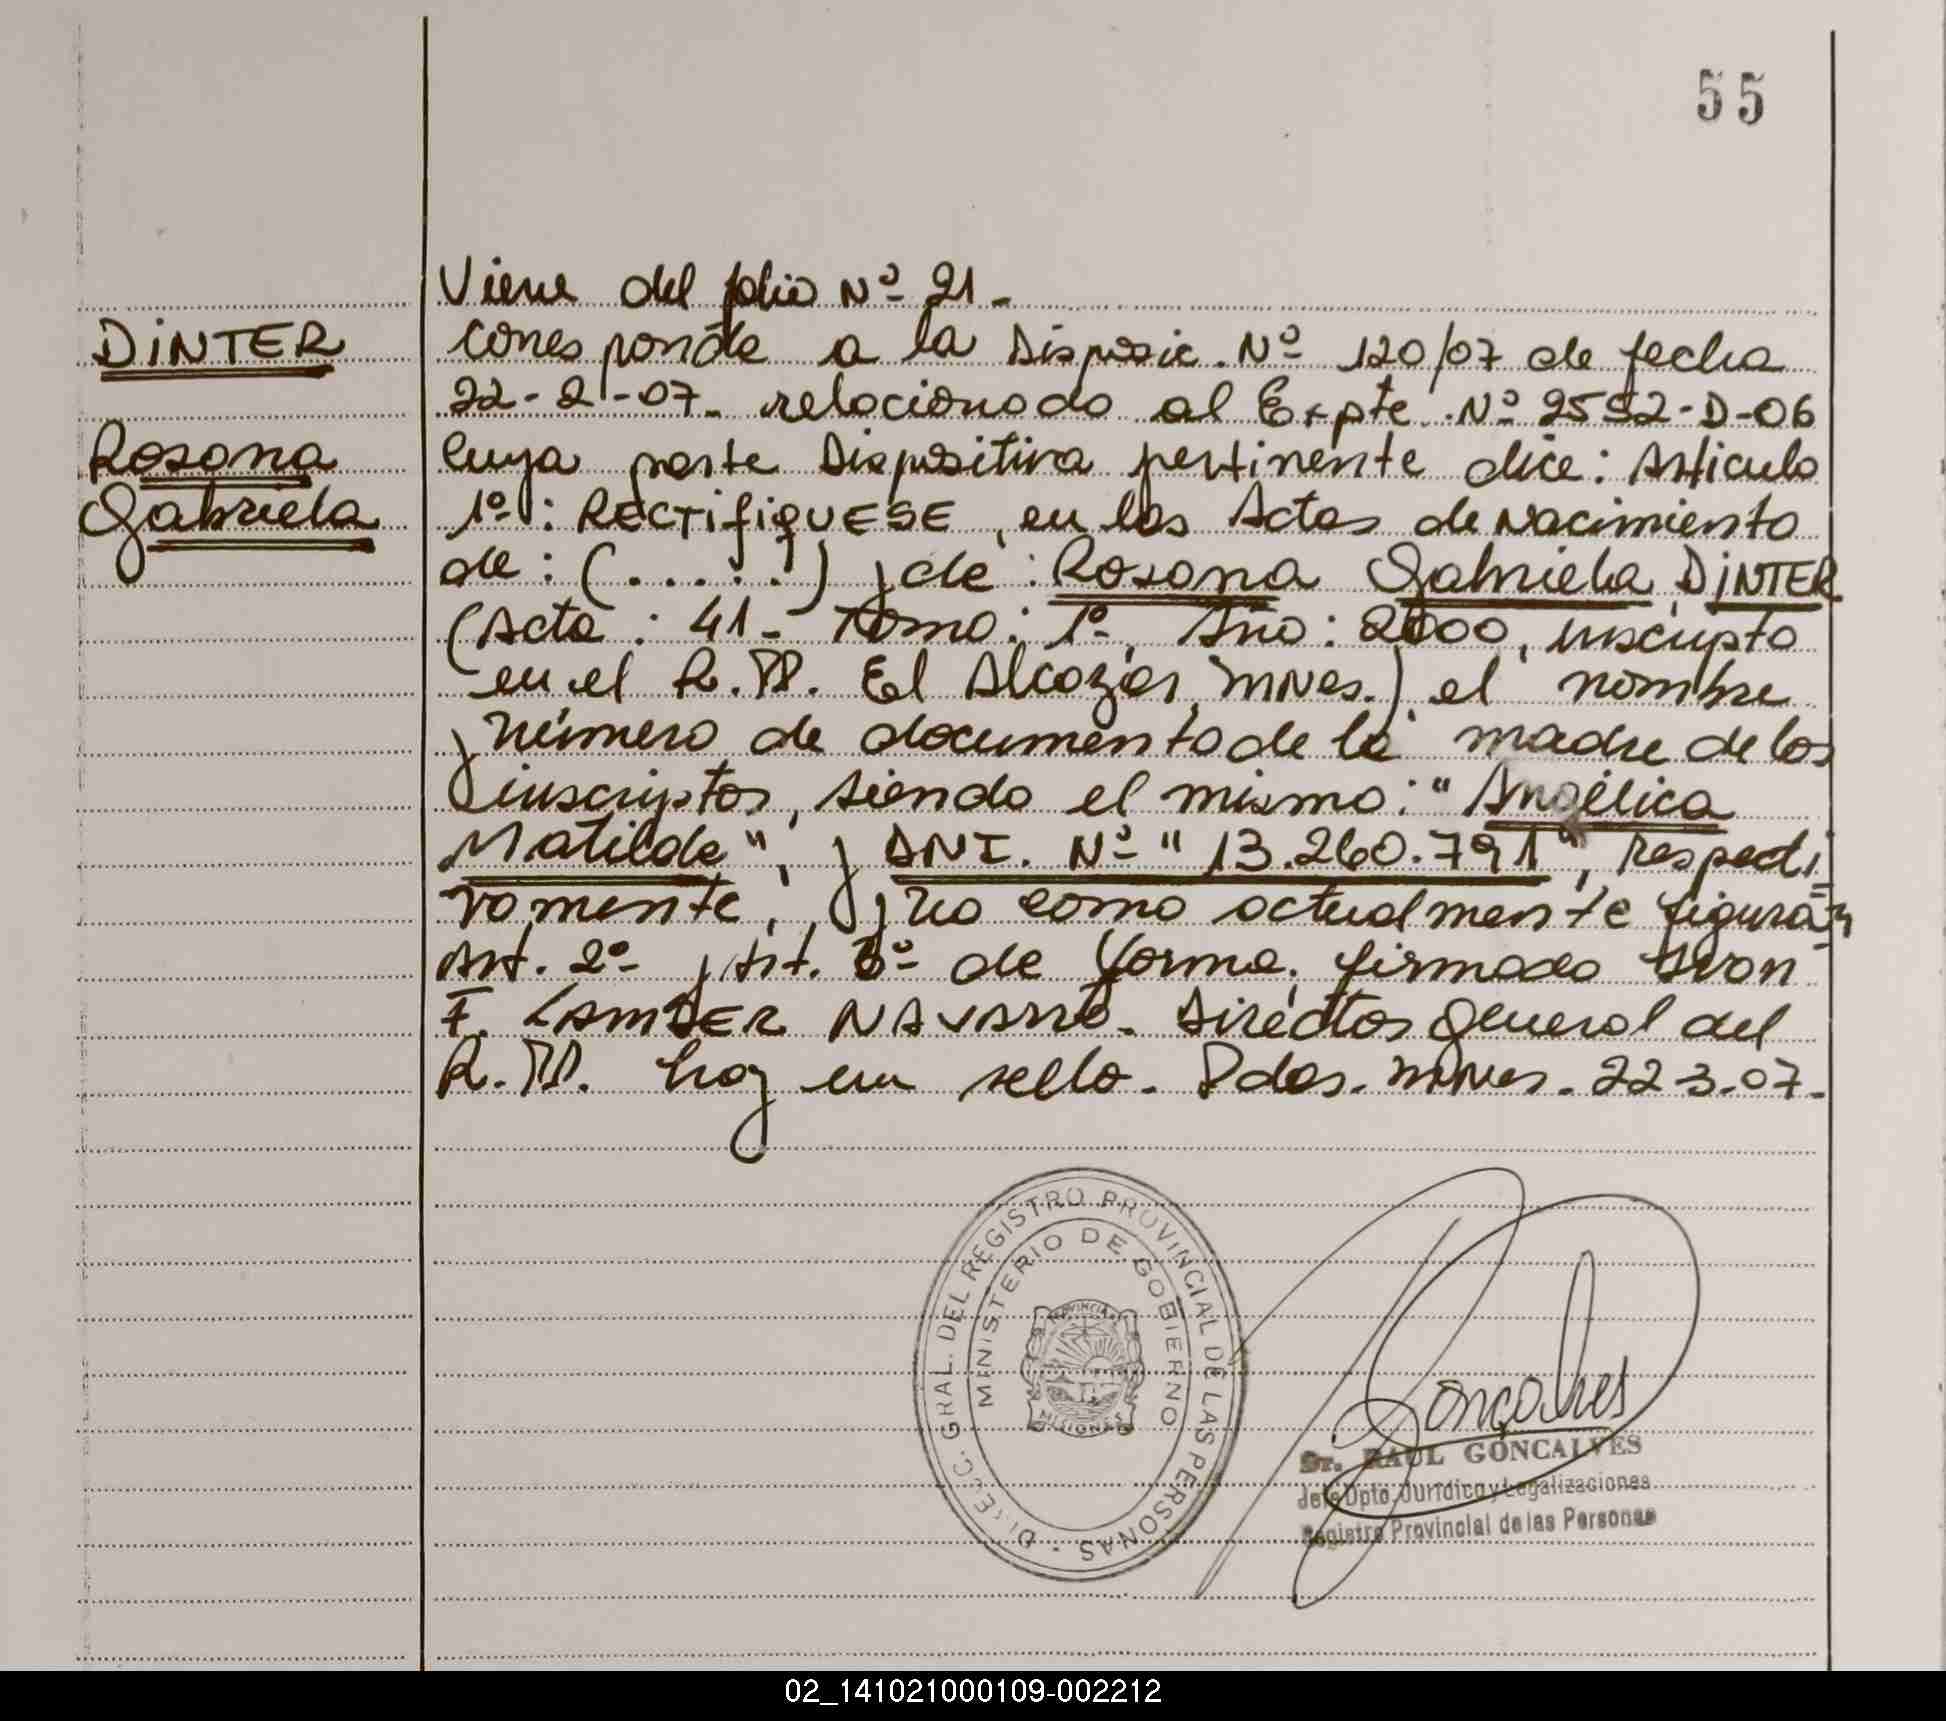 55
Viene del folio Nº 21-
DiNTER
Corresponde a la Disposic. Nº 120/07 de fecha
22-2-07- relacionado al Expte. Nº 2552-D-06
Rosana
Cuya parte Dispositiva pertinente dice: Artículo
Gabriela
1º: RECTifiQUESE, en las Actas de Nacimiento
de: (.....) y de: Rosana Gabriela DiNTER
(Acta: 41- Tomo: 1º- Año: 2000, inscripta
en el R.PP. El Alcazar, Mnes.) el nombre
y número de documento de la madre de los
inscriptos, siendo el mismo: "Angélica
Matilde", y DNI. Nº "13.260.791", respecti
vamente, y no como actualmente figuran
Art. 2º y Art. 3º de forma. firmado Ivan
F. NAVARRO. Director General del
R.PP. hay un sello. Pdas. Mnes. 22-3-07-
DIRECC. GRAL. DEL REGISTRO PROVINCIAL DE LAS PERSONAS -
MINISTERIO DE GOBIERNO
PROVINCIA
MISIONES
Goncalves
Dr. RAUL GONCALVES
Jefe Dpto. Jurídico y Legalizaciones
Registro Provincial de las Personas
02_141021000109-002212